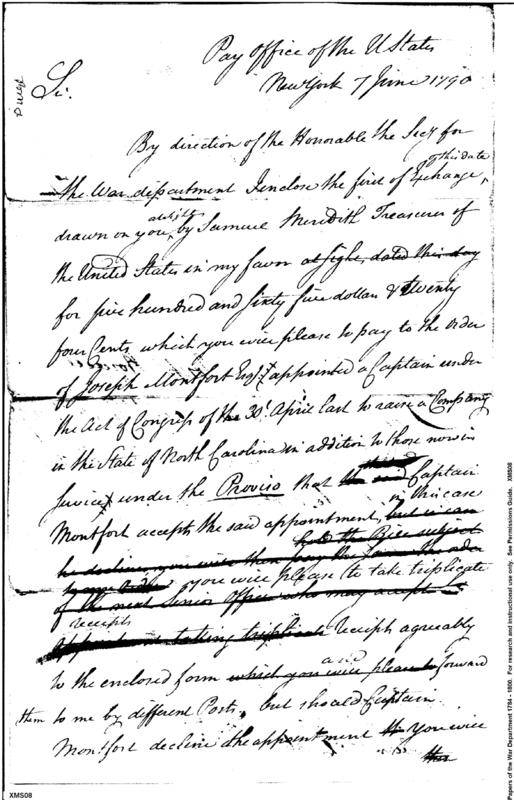 Pay Office of the U States
New York 7 June 1790
Sir.
By direction of the Honorable the Secy for
the War department I enclose the first of Exchange, of this date
drawn on you, at sight by Samuel Meridith Treasurer of
the United States in my favor at sight, dated this day
for five hundred and sixty five dollars & twenty
four Cents which you will please to pay to the order
of Joseph Montfort Esqr appointed a Captain under
the Act of Congress of the 30t. April last to raise a Company
in the State of North Carolina in addition to those now in
service, under the Proviso that the said Captain
Montfort accepts the said appointment, in this case but in case
he declines you will then hold the Bill subject
to my order you will please to take triplicate
of the next Senior Officer who may accept
receipts
appointment taking triplicate receipts agreeably
to the enclosed form which you will please to and forward
them to me by different Posts, but should Captain
Montfort decline the appointment you will
this
XMS08
Papers of the War Department 1784 - 1800. For research and instructional use only. See Permissions Guide. XMS08